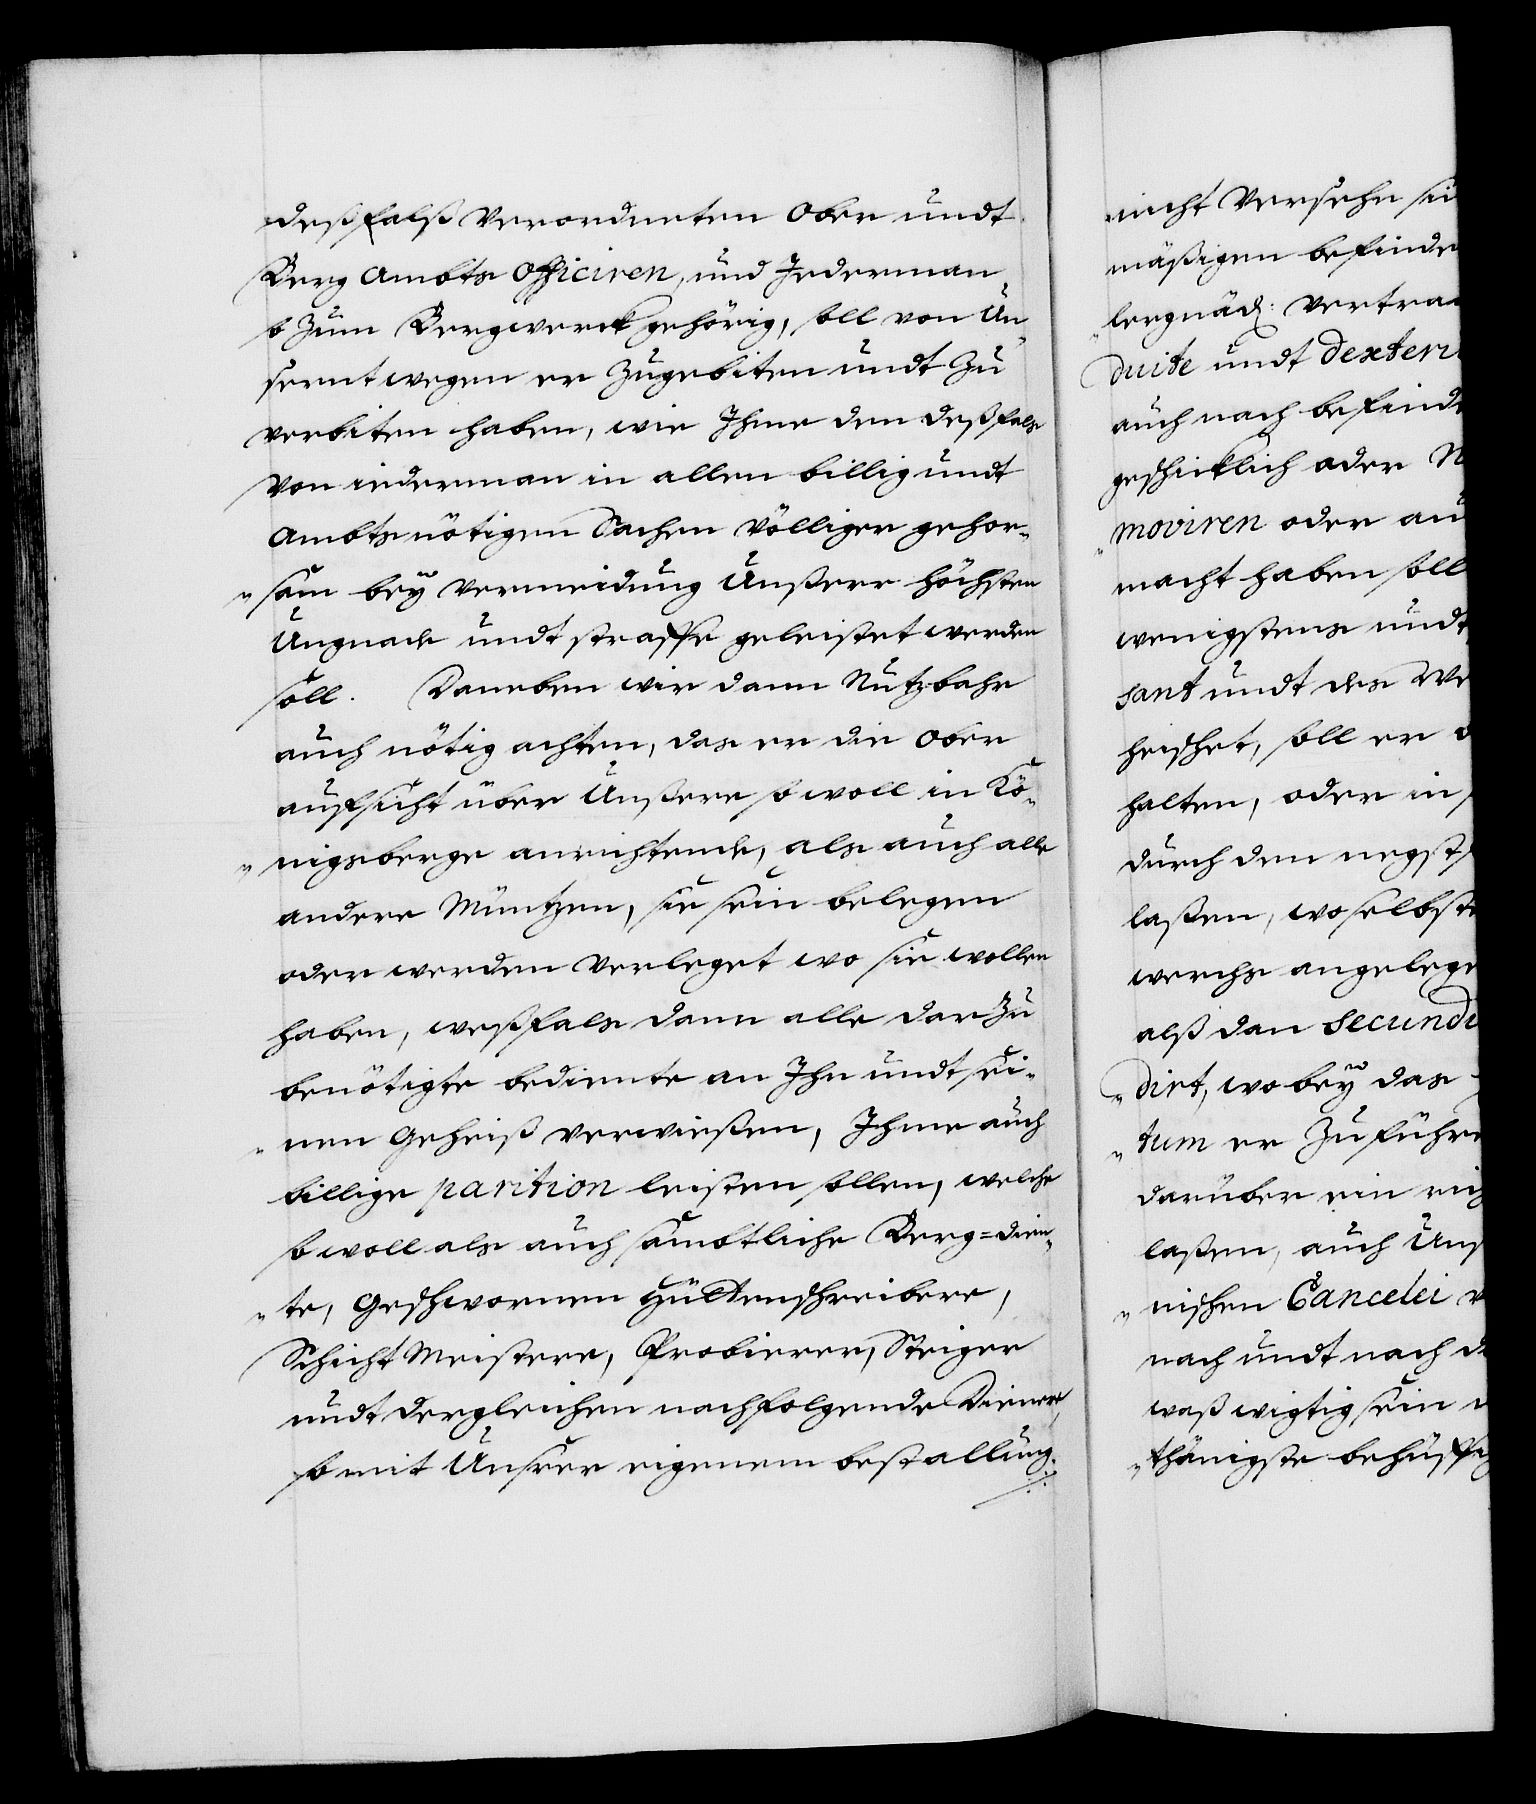 deßfalß Verordneten Ober undt
Berg Ambts Officiren, und Jederman
so Zum Bergwerck gehörig, soll von Un¬
serntwegen er Zugebiten undt Zu
verbiten haben, wie Jhme den deßfals
Von iederman in allen billig undt
Ambts nötigen Sachen Völliger gehor¬
"sam beÿ Vermeidung Unßerer höchsten
Ungnade undt straffe geleistet werden
soll. Daneben wir dann Nutzbahr
auch nötig achten, das er die Ober
aufsicht über Unßere so woll in Kö¬
"nigsberge anrichtende, als auch alle
andere Müntzen, sie sein belegen
oder werden Verleget wo sie wollen
haben, weßfals dann alle darZu
benötigte bediente an Jhn undt sei¬
"nen Geheiß verwießen, Jhme auch
billige parition leisten sollen, welche
so woll als auch sämbtliche Berg=dien¬
"te, Geschwornen Hüttenschreibere,
Schicht Meistere, Probierer, Steiger
undt dergleichen nachfolgende Dienere,
so mit Unsrer eigenem bestallung
nicht Versehn
mäßigen befinde
lergnäd: Vertra
duite undt dexteri
auch nach befind
geschicklich oder
"moviren oder au
macht haben soll
wenigstens undt
sant undt des We
heischet, soll er
halten, oder in
durch den negst
laßen, woselbst
wercks angelege
alß dan secundi
"dirt, wo beÿ das
"tum er Zu führe
darüber ein
laßen, auch Uns
"nischen Cancelei
nach undt nach
waß wigtig sein
"thänigste